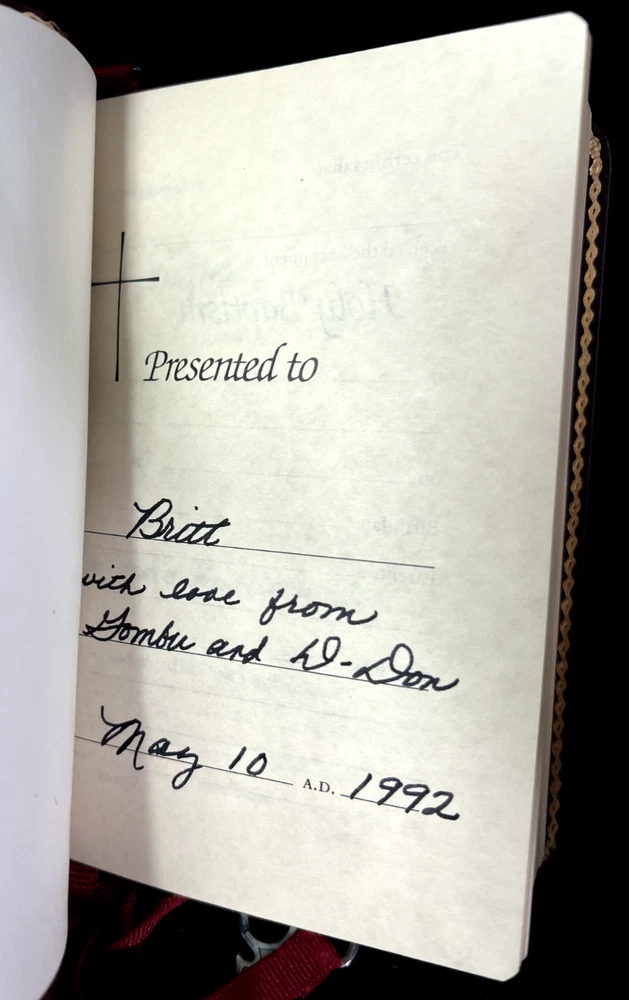 Presented to
Britt
with love from
Gombu and D-Don
May 10 A.D. 1992